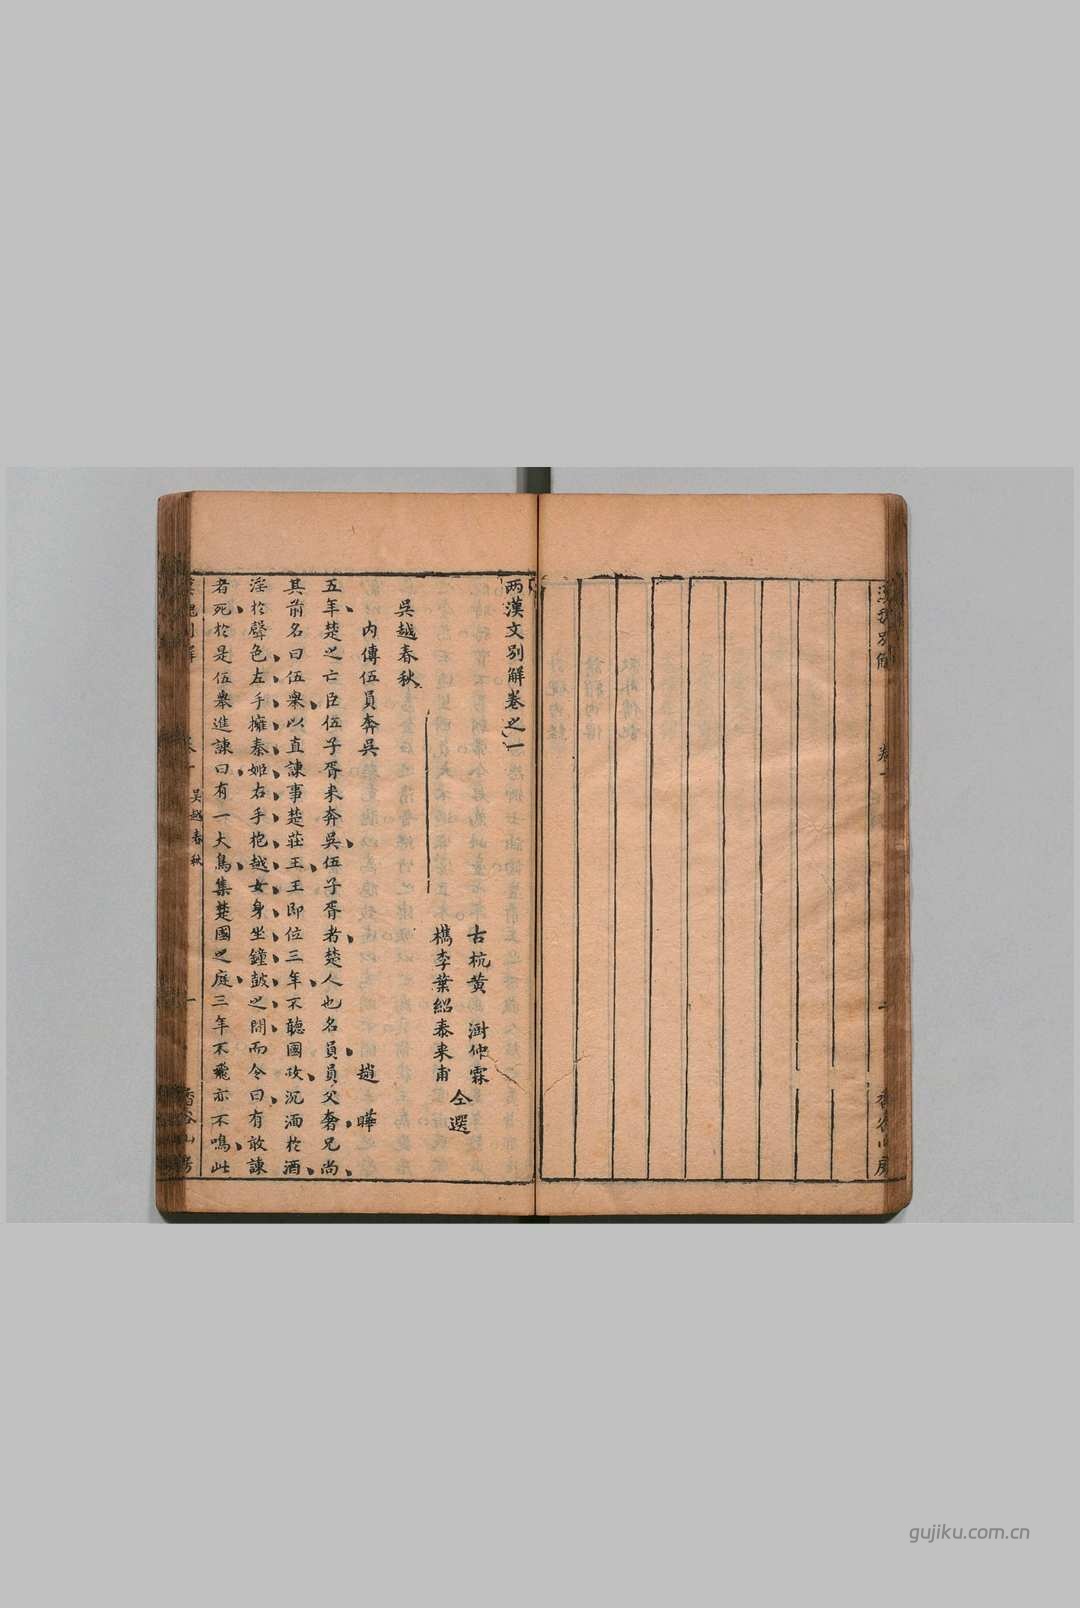 两漢文別解卷之一
古杭黃澍仲霖
檇李葉紹泰来甫
仝選
吳越春秋
內傳伍員奔吳
趙曄
五年楚之亡臣伍子胥来奔吳伍子胥者楚人也名員員父奢兄尚
其前名曰伍舉以直諫事楚莊王王即位三年不聽國政沉湎扵酒
淫扵聲色左手擁秦姬右手抱越女身坐鐘鼓之間而令曰有敢諫
者死扵是伍舉進諫曰有一大鳥集楚國之庭三年不飛亦不鳴此
吳越春秋
一
香谷山房
卷一
gujiku.com.cn